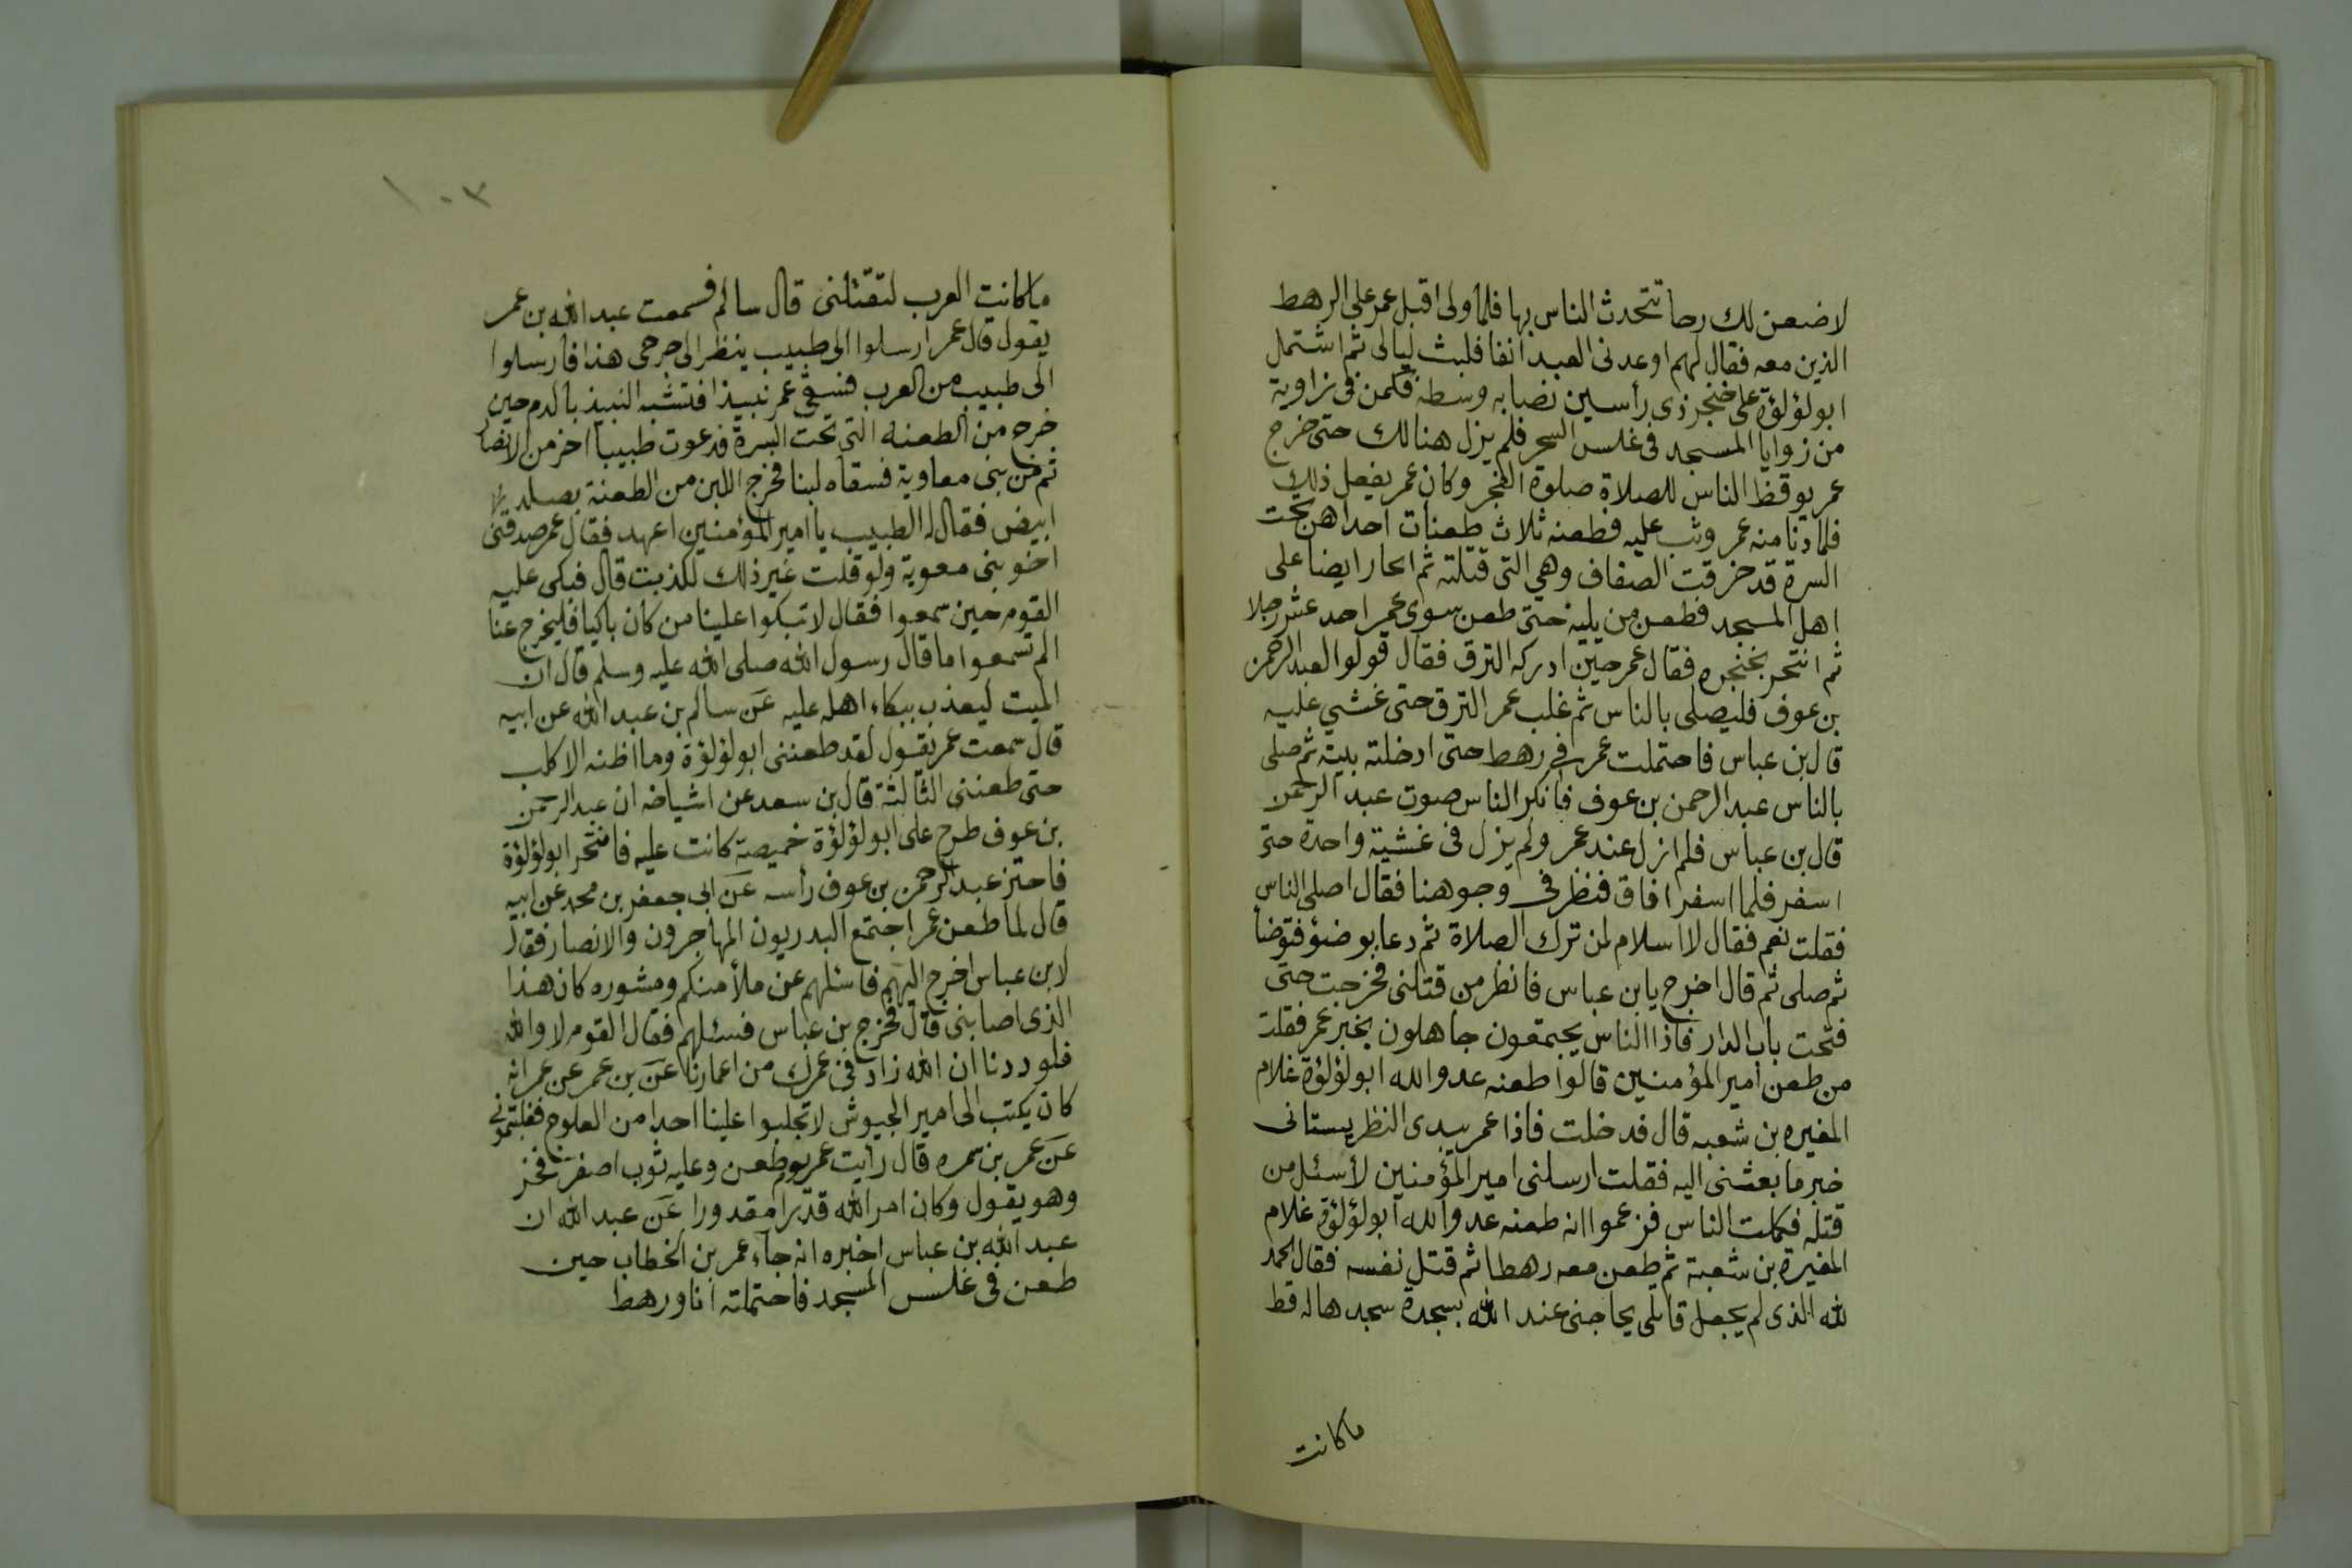 لاضعن لك رحا تتحدث الناس بها فلما ولى اقبل عمر على الرهط
الذين معه فقال لهم اوعدنى العبد انفا فلبث ليالى ثم اشتمل
ابو لؤلؤة على خنجر ذى رأسين نصابه وسطه فكمن فى زاوية
من زوايا المسجد فى غلس السحر فلم يزل هنالك حتى خرج
عمر يوقظ الناس للصلاة صلوة الفجر وكان عمر يفعل ذلك
فلما دنا منه عمر وثب عليه فطعنه ثلاث طعنات احداهن تحت
السرة قد خرقت الصفاف وهي التى قتلته ثم انحاز ايضا على
اهل المسجد فطعن من يليه حتى طعن سوى عمر احد عشر رجلا
ثم انتحر بخنجره فقال عمر حين ادركه النزق فقال قولوا لعبد الرحمن
بن عوف فليصلى بالناس ثم غلب عمر النزق حتى غشي عليه
قال بن عباس فاحتملت عمر فى رهط حتى ادخلته بيته ثم صلى
بالناس عبد الرحمن بن عوف فانكر الناس صوت عبد الرحمن
قال بن عباس فلم ازل عند عمر ولم يزل فى غشية واحدة حتى
اسفر فلما اسفر افاق فنظر فى وجوهنا فقال اصلى الناس
فقلت نعم فقال لا اسلام لمن ترك الصلاة ثم دعا بوضوء فتوضأ
ثم صلى ثم قال اخرج يا بن عباس فانظر من قتلنى فخرجت حتى
فتحت باب الدار فاذا الناس يجتمعون جاهلون بخبر عمر فقلت
من طعن امير المؤمنين قالوا طعنه عدو الله ابو لؤلؤة غلام
المغيره بن شعبه قال فدخلت فاذا عمر يبدى النظر يستانى
خبر ما بعثنى اليه فقلت ارسلنى امير المؤمنين لأسئل من
قتله فكلمت الناس فزعموا انه طعنه عدو الله ابو لؤلؤة غلام
المغيرة بن شعبة ثم طعن معه رهطا ثم قتل نفسه فقال الحمد
لله الذى لم يجعل قاتلى يحاجنى عند الله بسجدة سجدها له قط
ما كانت
١٠٣
ما كانت العرب لتقتلنى قال سالم فسمعت عبد الله بن عمر
يقول قال عمر ارسلوا الى طبيب ينظر الى جرحى هذا فأرسلوا
الى طبيب من العرب فسقى عمر نبيذا فتشبه النبيذ بالدم حين
خرج من الطعنه التى تحت السرة فدعوت طبيبا اخر من الانصار
ثم من بنى معاوية فسقاه لبنا فخرج اللبن من الطعنة يصلد
ابيض فقال له الطبيب يا امير المؤمنين اعهد فقال عمر صدقنى
اخو بنى معوية ولو قلت غير ذلك لكذبت قال فبكى عليه
القوم حين سمعوا فقال لا تبكوا علينا من كان باكيا فليخرج عنا
الم تسمعوا ما قال رسول الله صلى الله عليه وسلم قال ان
الميت ليعذب ببكاء اهله عليه عن سالم بن عبد الله عن ابيه
قال سمعت عمر يقول لقد طعننى ابو لؤلؤة وما اظنه الا كلب
حتى طعننى الثالثة قال بن سعد عن اشياخه ان عبد الرحمن
بن عوف طرح على ابو لؤلؤة خميصة كانت عليه فانتحر ابو لؤلؤة
فاحتز عبد الرحمن بن عوف رأسه عن ابى جعفر بن محمد عن ابيه
قال لما طعن عمر اجتمع البدريون المهاجرون والانصار فقال
لابن عباس اخرج اليهم فاسئلهم عن ملأ منكم ومشوره كان هذا
الذى اصابنى قال فخرج بن عباس فسئلهم فقال القوم لا والله
فلوددنا ان الله زاد فى عمرك من اعمارنا عن بن عمر عن عمر انه
كان يكتب الى امير الجيوش لا تجلبوا علينا احدا من العلوج فغلبتمونى
عن عمر بن سمره قال رأيت عمر يوم طعن وعليه ثوب اصفر فخر
وهو يقول وكان امر الله قدرا مقدورا عن عبد الله ان
عبد الله بن عباس اخبره انه جاء عمر بن الخطاب حين
طعن فى غلس المسجد فاحتملته انا ورهط